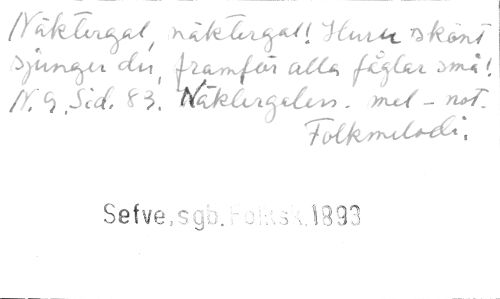 Näktergal, näktergal! Huru skönt
sjunger du, framför alla fåglar små!
N. G. Sid. 83. Näktergalen. mel-not.
Folkmelodi.
Sefve, sgb. Folksk. 1893